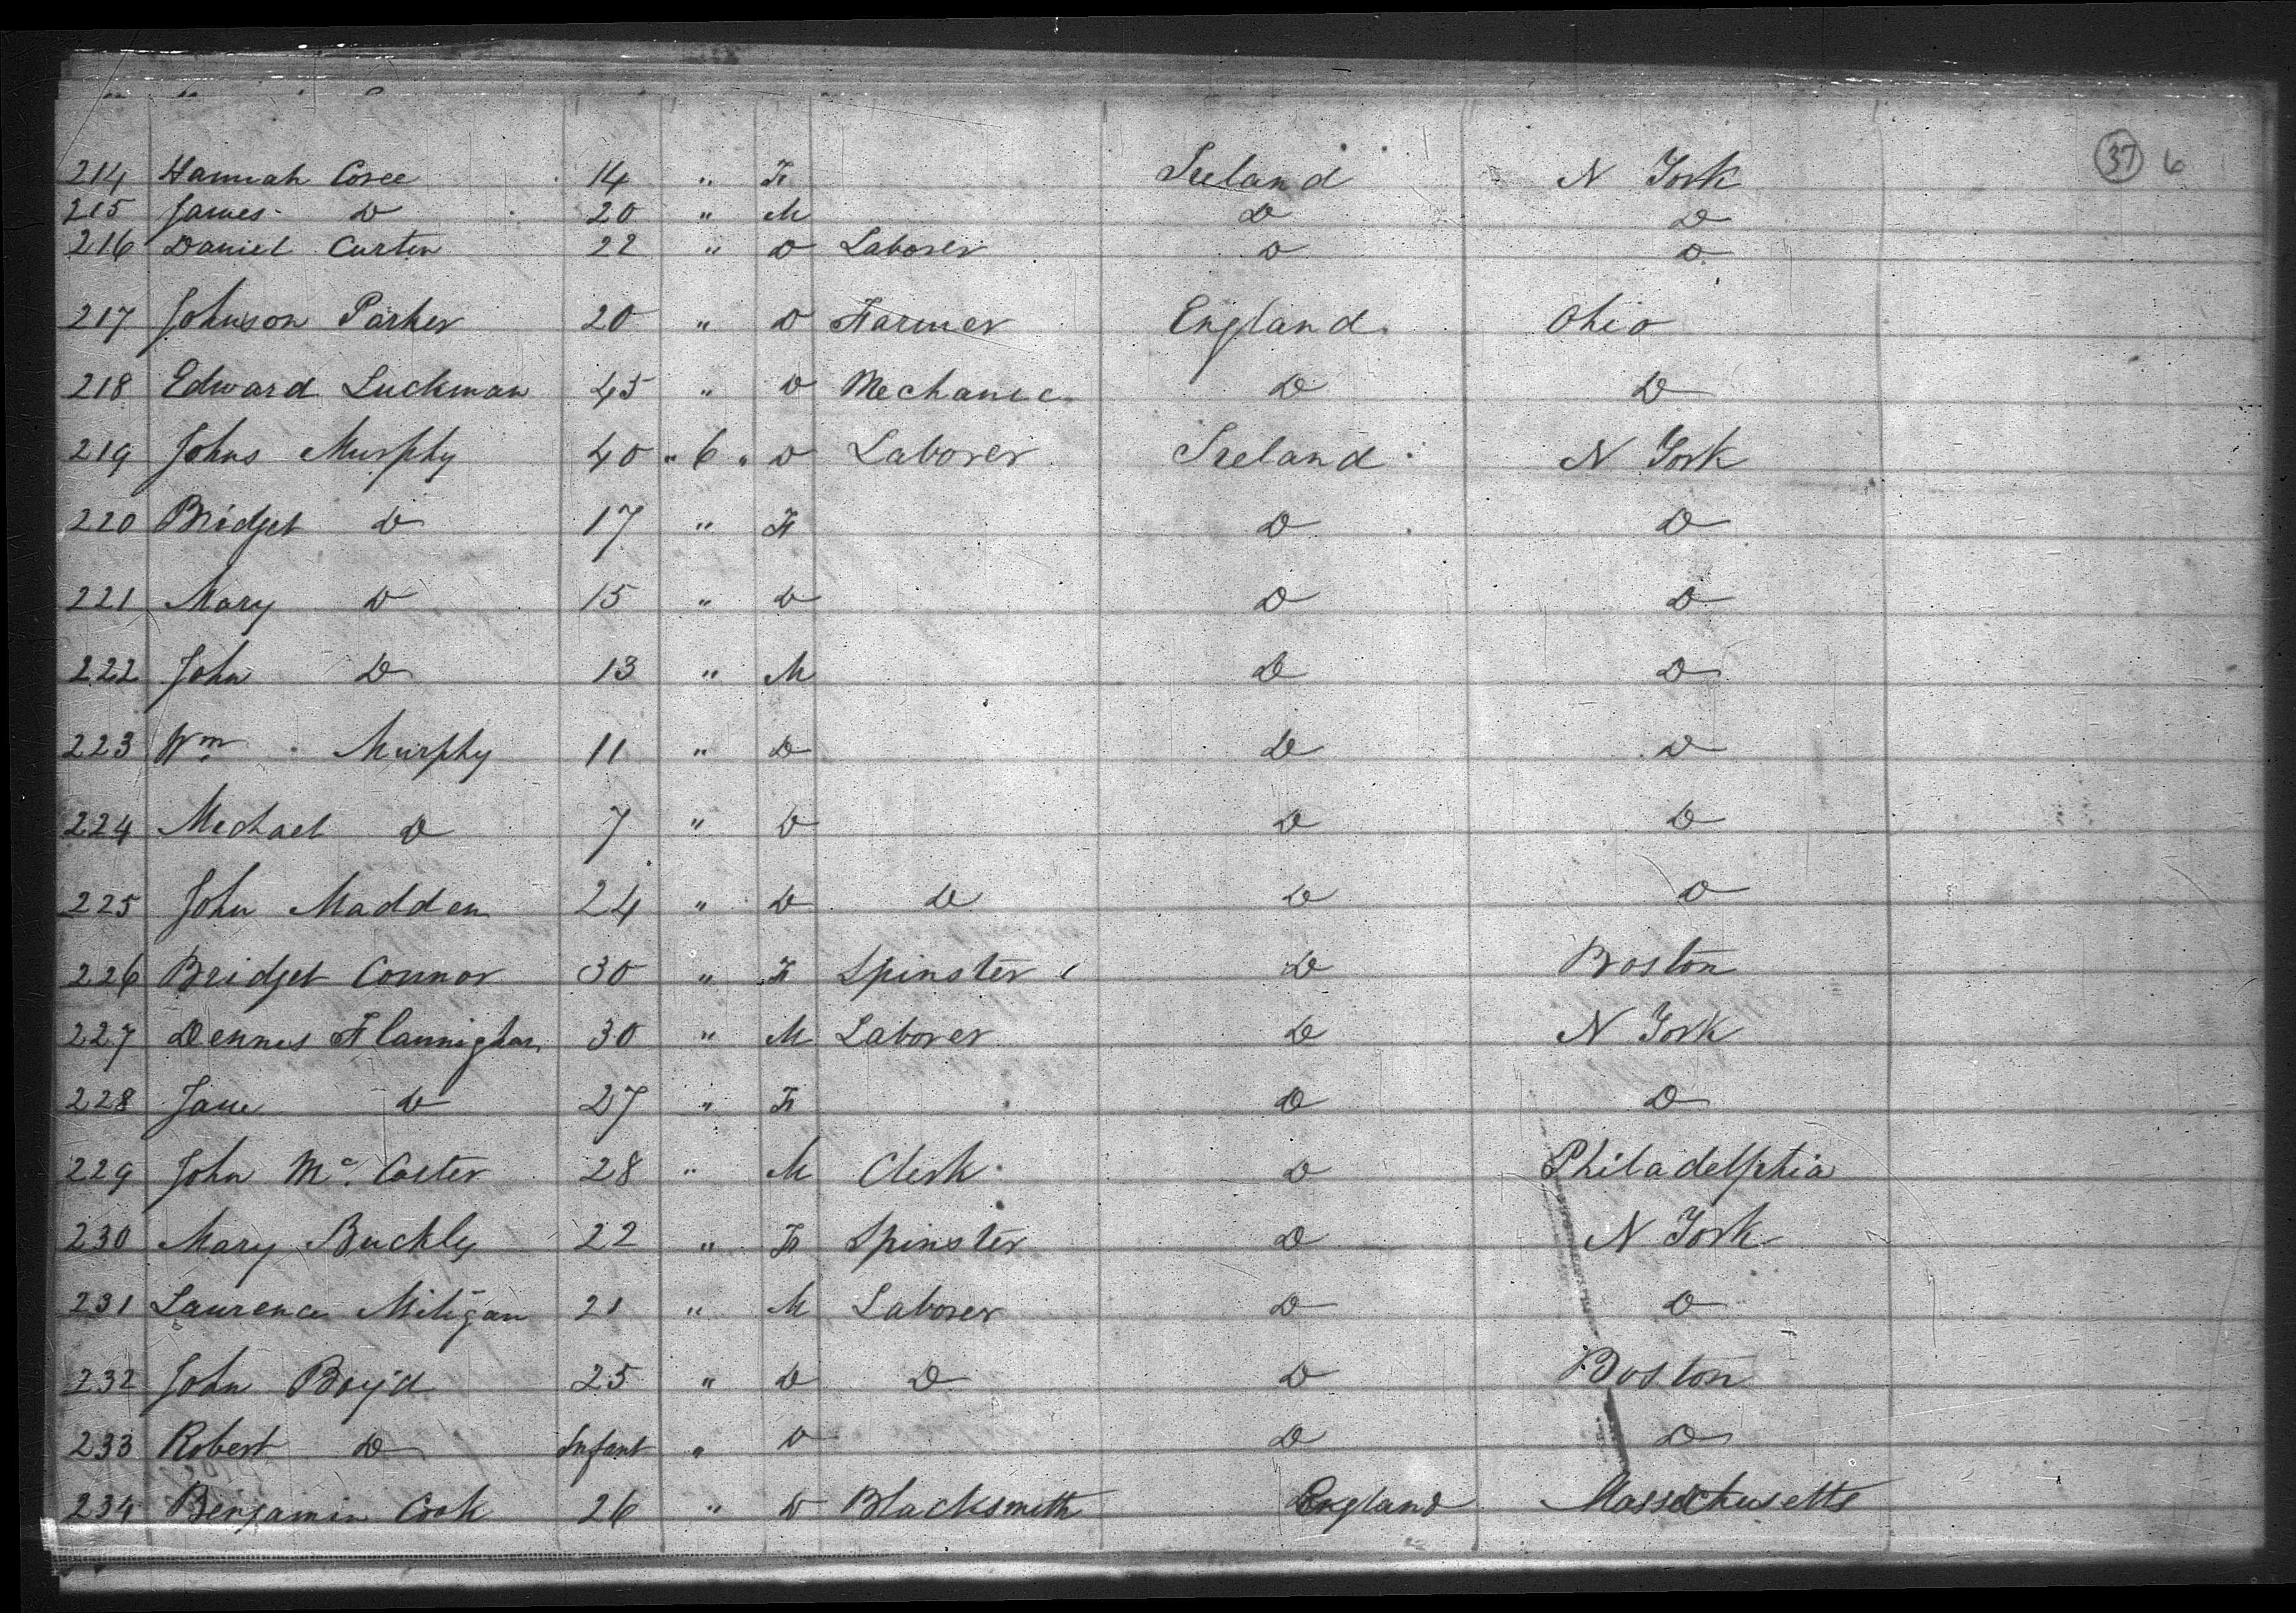 37 6
214 Hannah Cosee 14 " F Ireland N York
215 James D 20 " M D D
216 Daniel Curten 22 " D Laborer D D
217 Johnson Parker 20 " D Farmer England Ohio
218 Edward Luckman 45 " D Mechanic D D
219 Johns Murphy 40 " 6 " D Laborer Ireland N York
220 Bridget D 17 " F D D
221 Mary D 15 " D D D
222 John D 13 " M D D
223 Wm Murphy 11 " D D D
224 Michael D 7 " D D D
225 John Madden 24 " D D D D
226 Bridget Connor 30 " F Spinster D Boston
227 Dennes Flannighan 30 " M Laborer D N York
228 Jane D 27 " F D D
229 John Mc Carter 28 " M Clerk D Philadelphia
230 Mary Buckly 22 " F Spinster D N York
231 Laurence Miligan 21 " M Laborer D D
232 John Boyd 25 " D D D Boston
233 Robert D Infant " D D D
234 Benjamin Cook 26 " D Blacksmith England Massachusetts